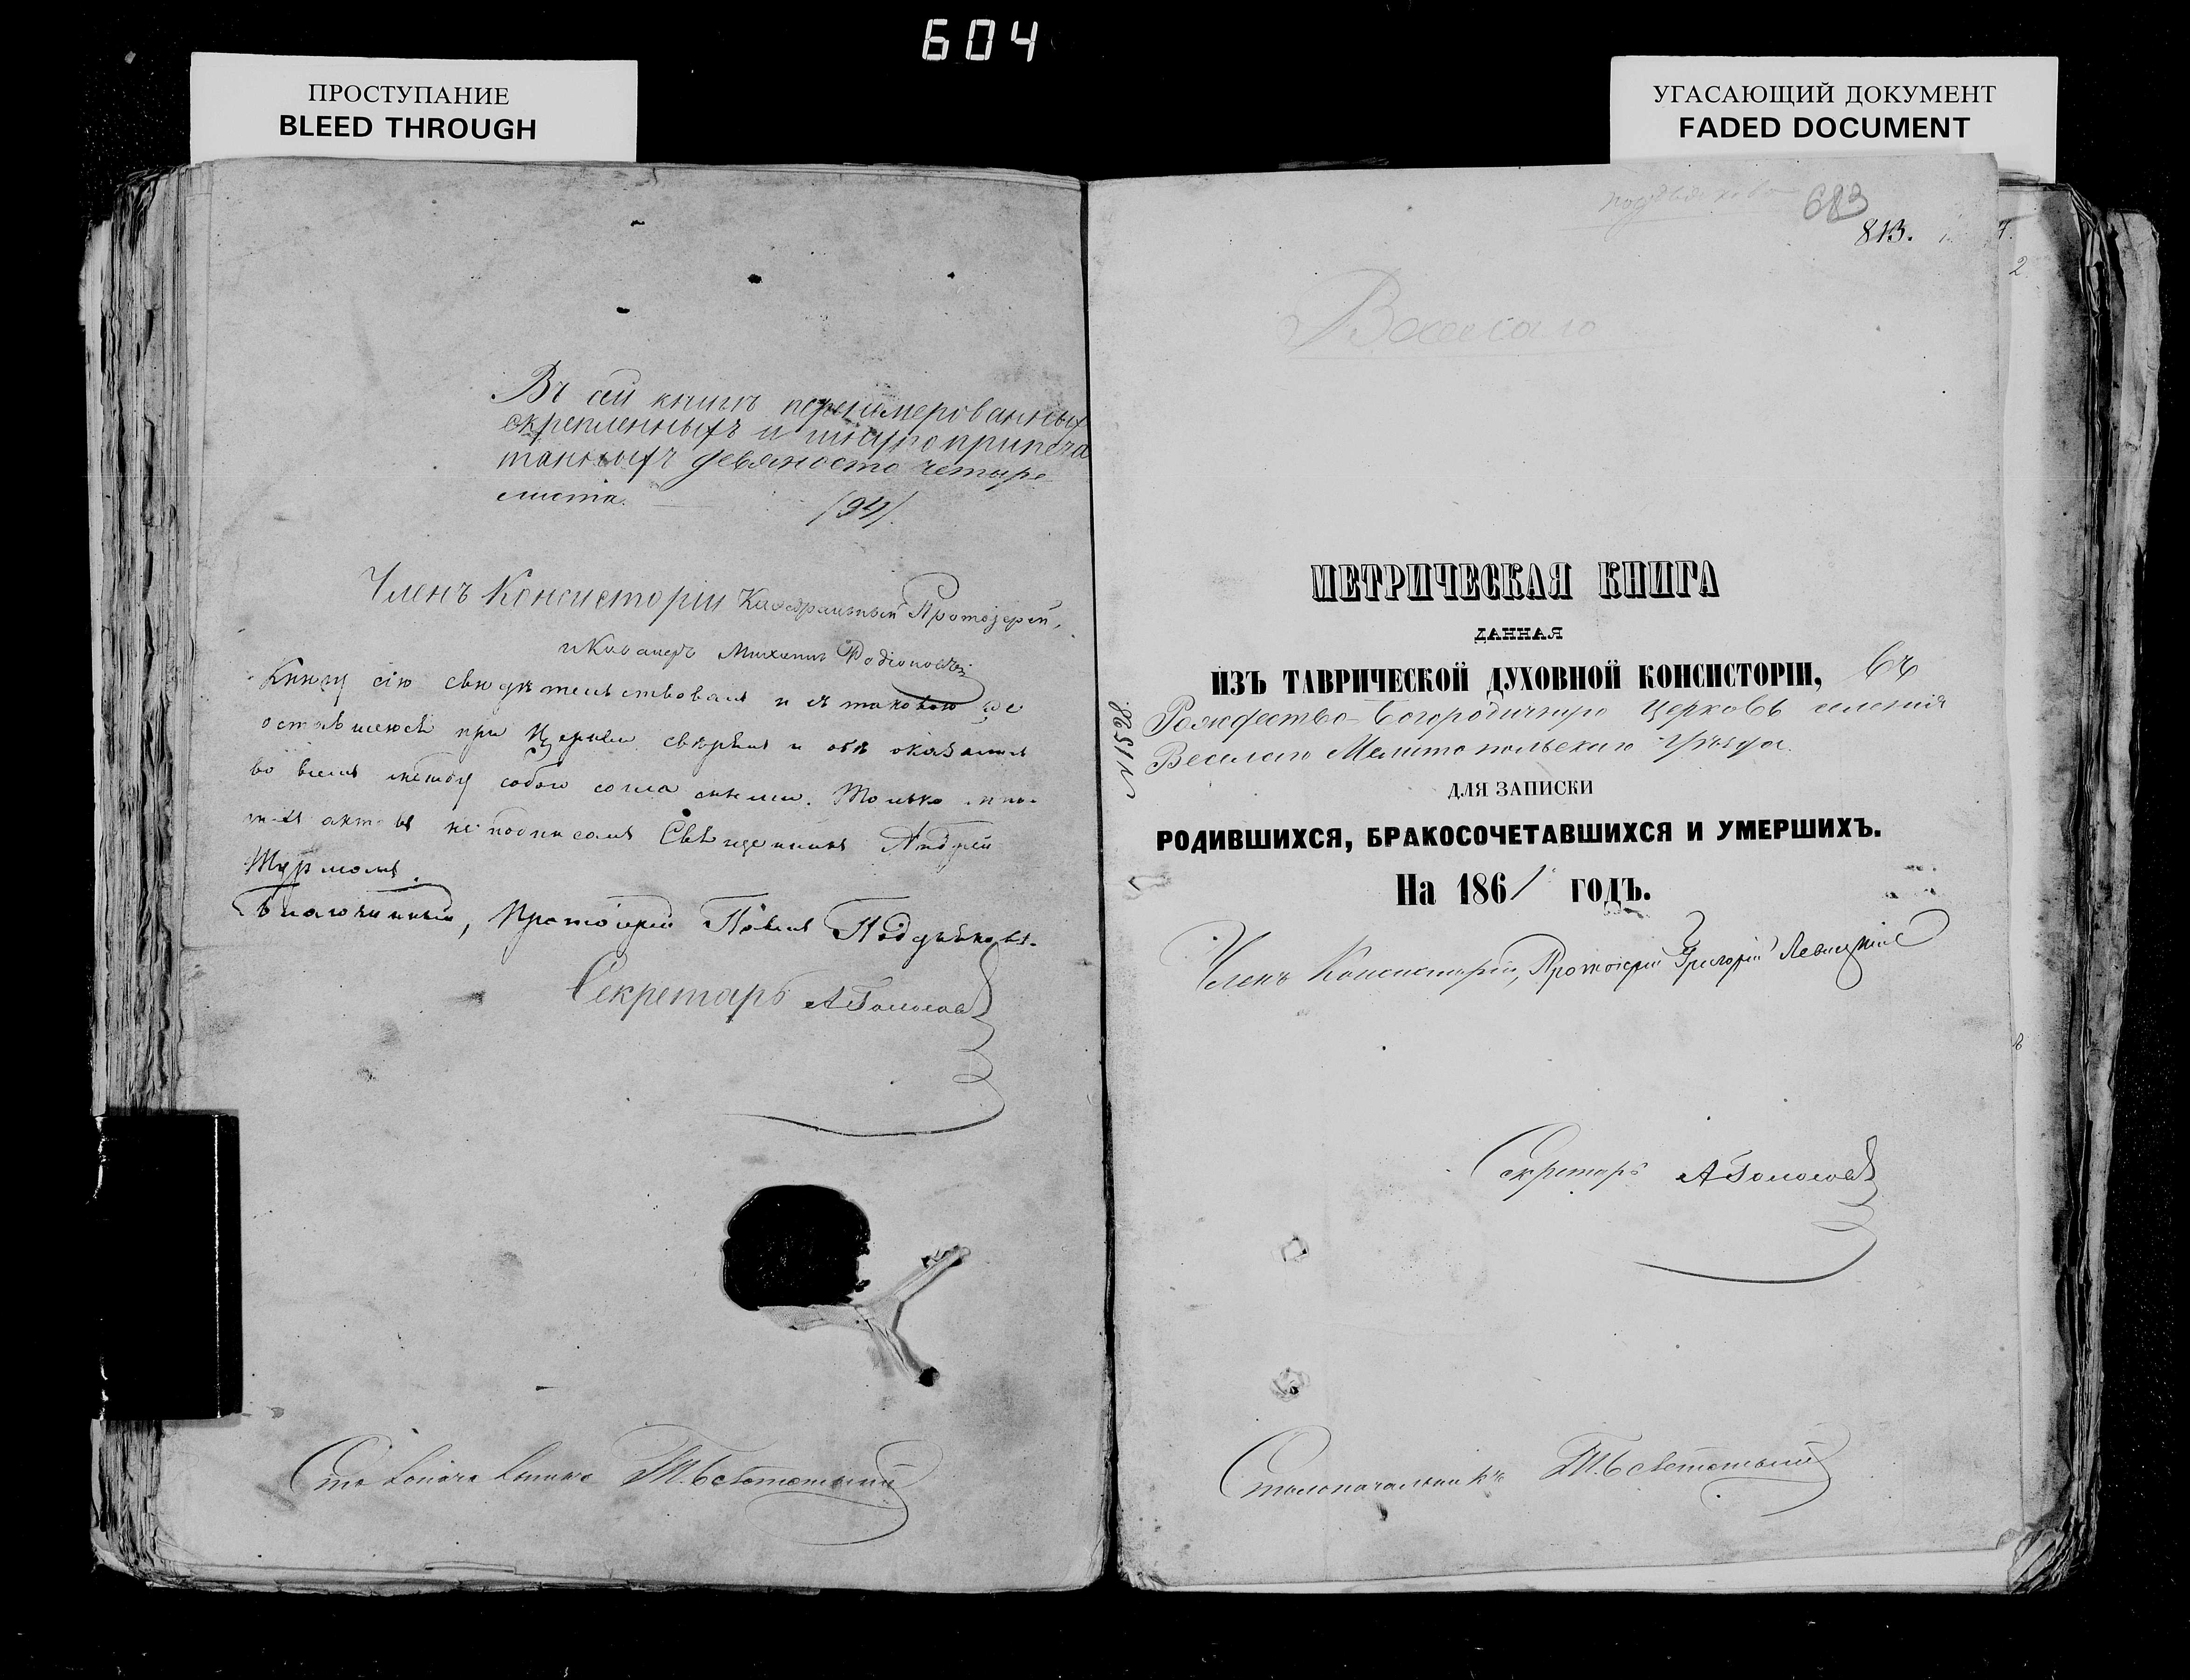 604
ПРОСТУПАНИЕ
BLEED THROUGH
УГАСАЮЩИЙ ДОКУМЕНТ
FADED DOCUMENT
Въ сей книгѣ перенумерованныхъ
скрепленныхъ и шнуроприпеча
танныхъ девяносто четыре
листа.
/94/.
Членъ Консисторіи Каѳедральный Протоіерей,
и Кавалеръ Михаилъ Родіоновъ
Книгу сію свидѣтельствовалъ и съ таковою же
оставшеюся при Церкви свѣрялъ и обѣ оказались
во всемъ между собою согласными. Только
актовъ не подписалъ Священникъ Андрей
Благочинный, Протоіерей Павелъ
Секретарь АГолосовъ
Столоначальникъ
683
813.
Веселаго
МЕТРИЧЕСКАЯ КНИГА
ДАННАЯ
ИЗЪ ТАВРИЧЕСКОЙ ДУХОВНОЙ КОНСИСТОРІИ, въ
Рождество-Богородичную церковь селенія
Веселаго Мелитопольскаго Уѣзда.
ДЛЯ ЗАПИСКИ
РОДИВШИХСЯ, БРАКОСОЧЕТАВШИХСЯ И УМЕРШИХЪ.
На 1861 ГОДЪ.
Членъ Консисторіи, Протоіерей Григорій Левицкій
Секретарь АГолосовъ
Столоначальникъ